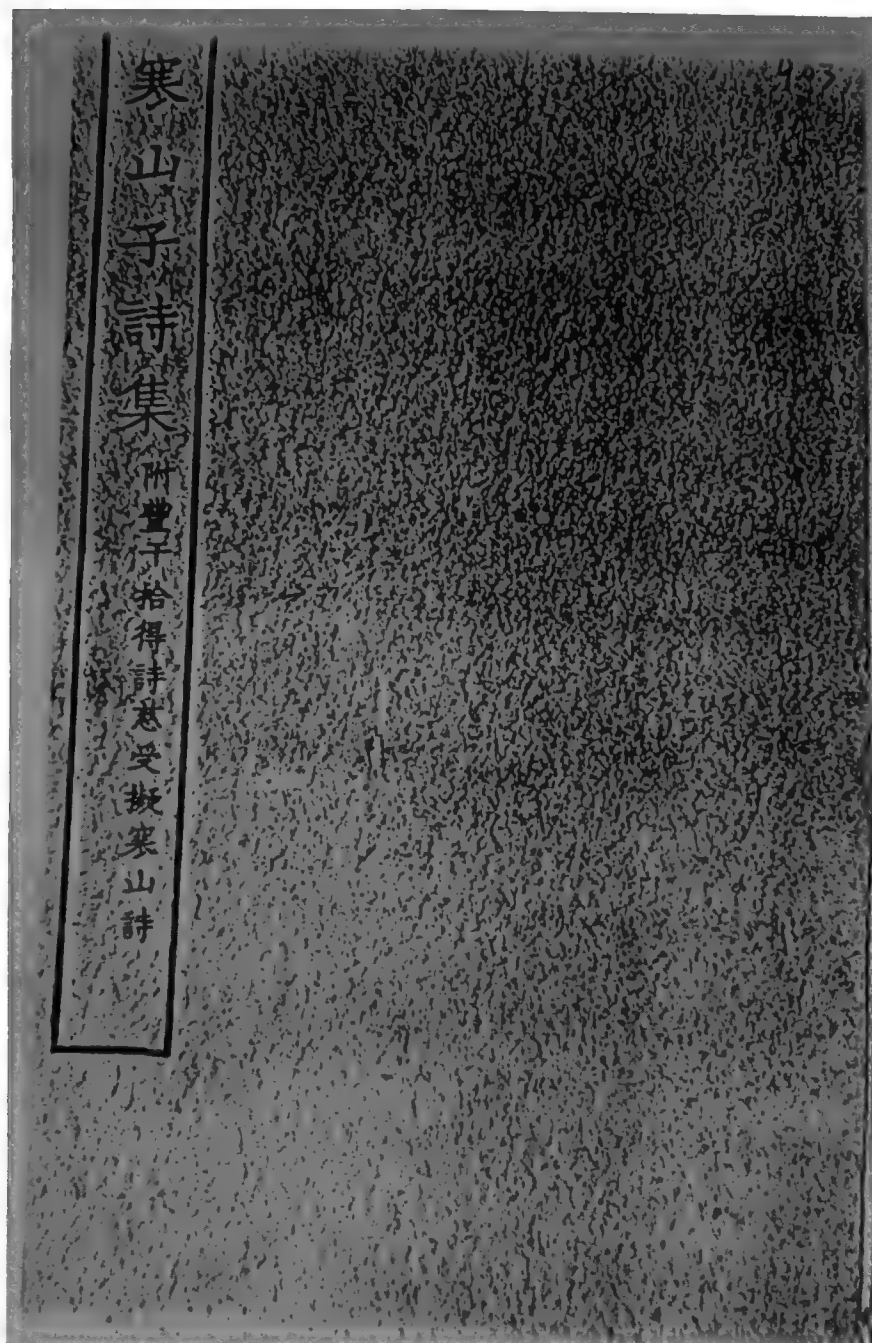 寒山子詩集 附豐干拾得詩慈受擬寒山詩
403